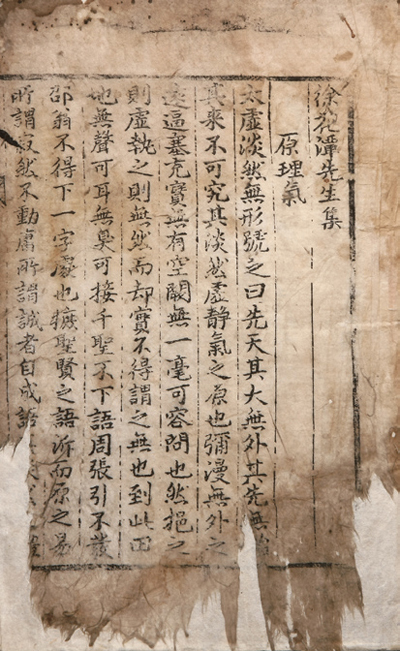 徐花潭先生集
原理氣
太虛淡然無形號之曰先天其大無外其先無
其來不可究其淡然虛静氣之原也彌漫無外之
遠逼塞充實無有空闕無一毫可容間也然挹之
則虛執之則無然而却實不得謂之無也到此田
地無聲可耳無臭可接千聖不下語周張引不發
邵翁不得下一字處也摭聖賢之語泝而原之易
所謂寂然不動庸所謂誠者自成語